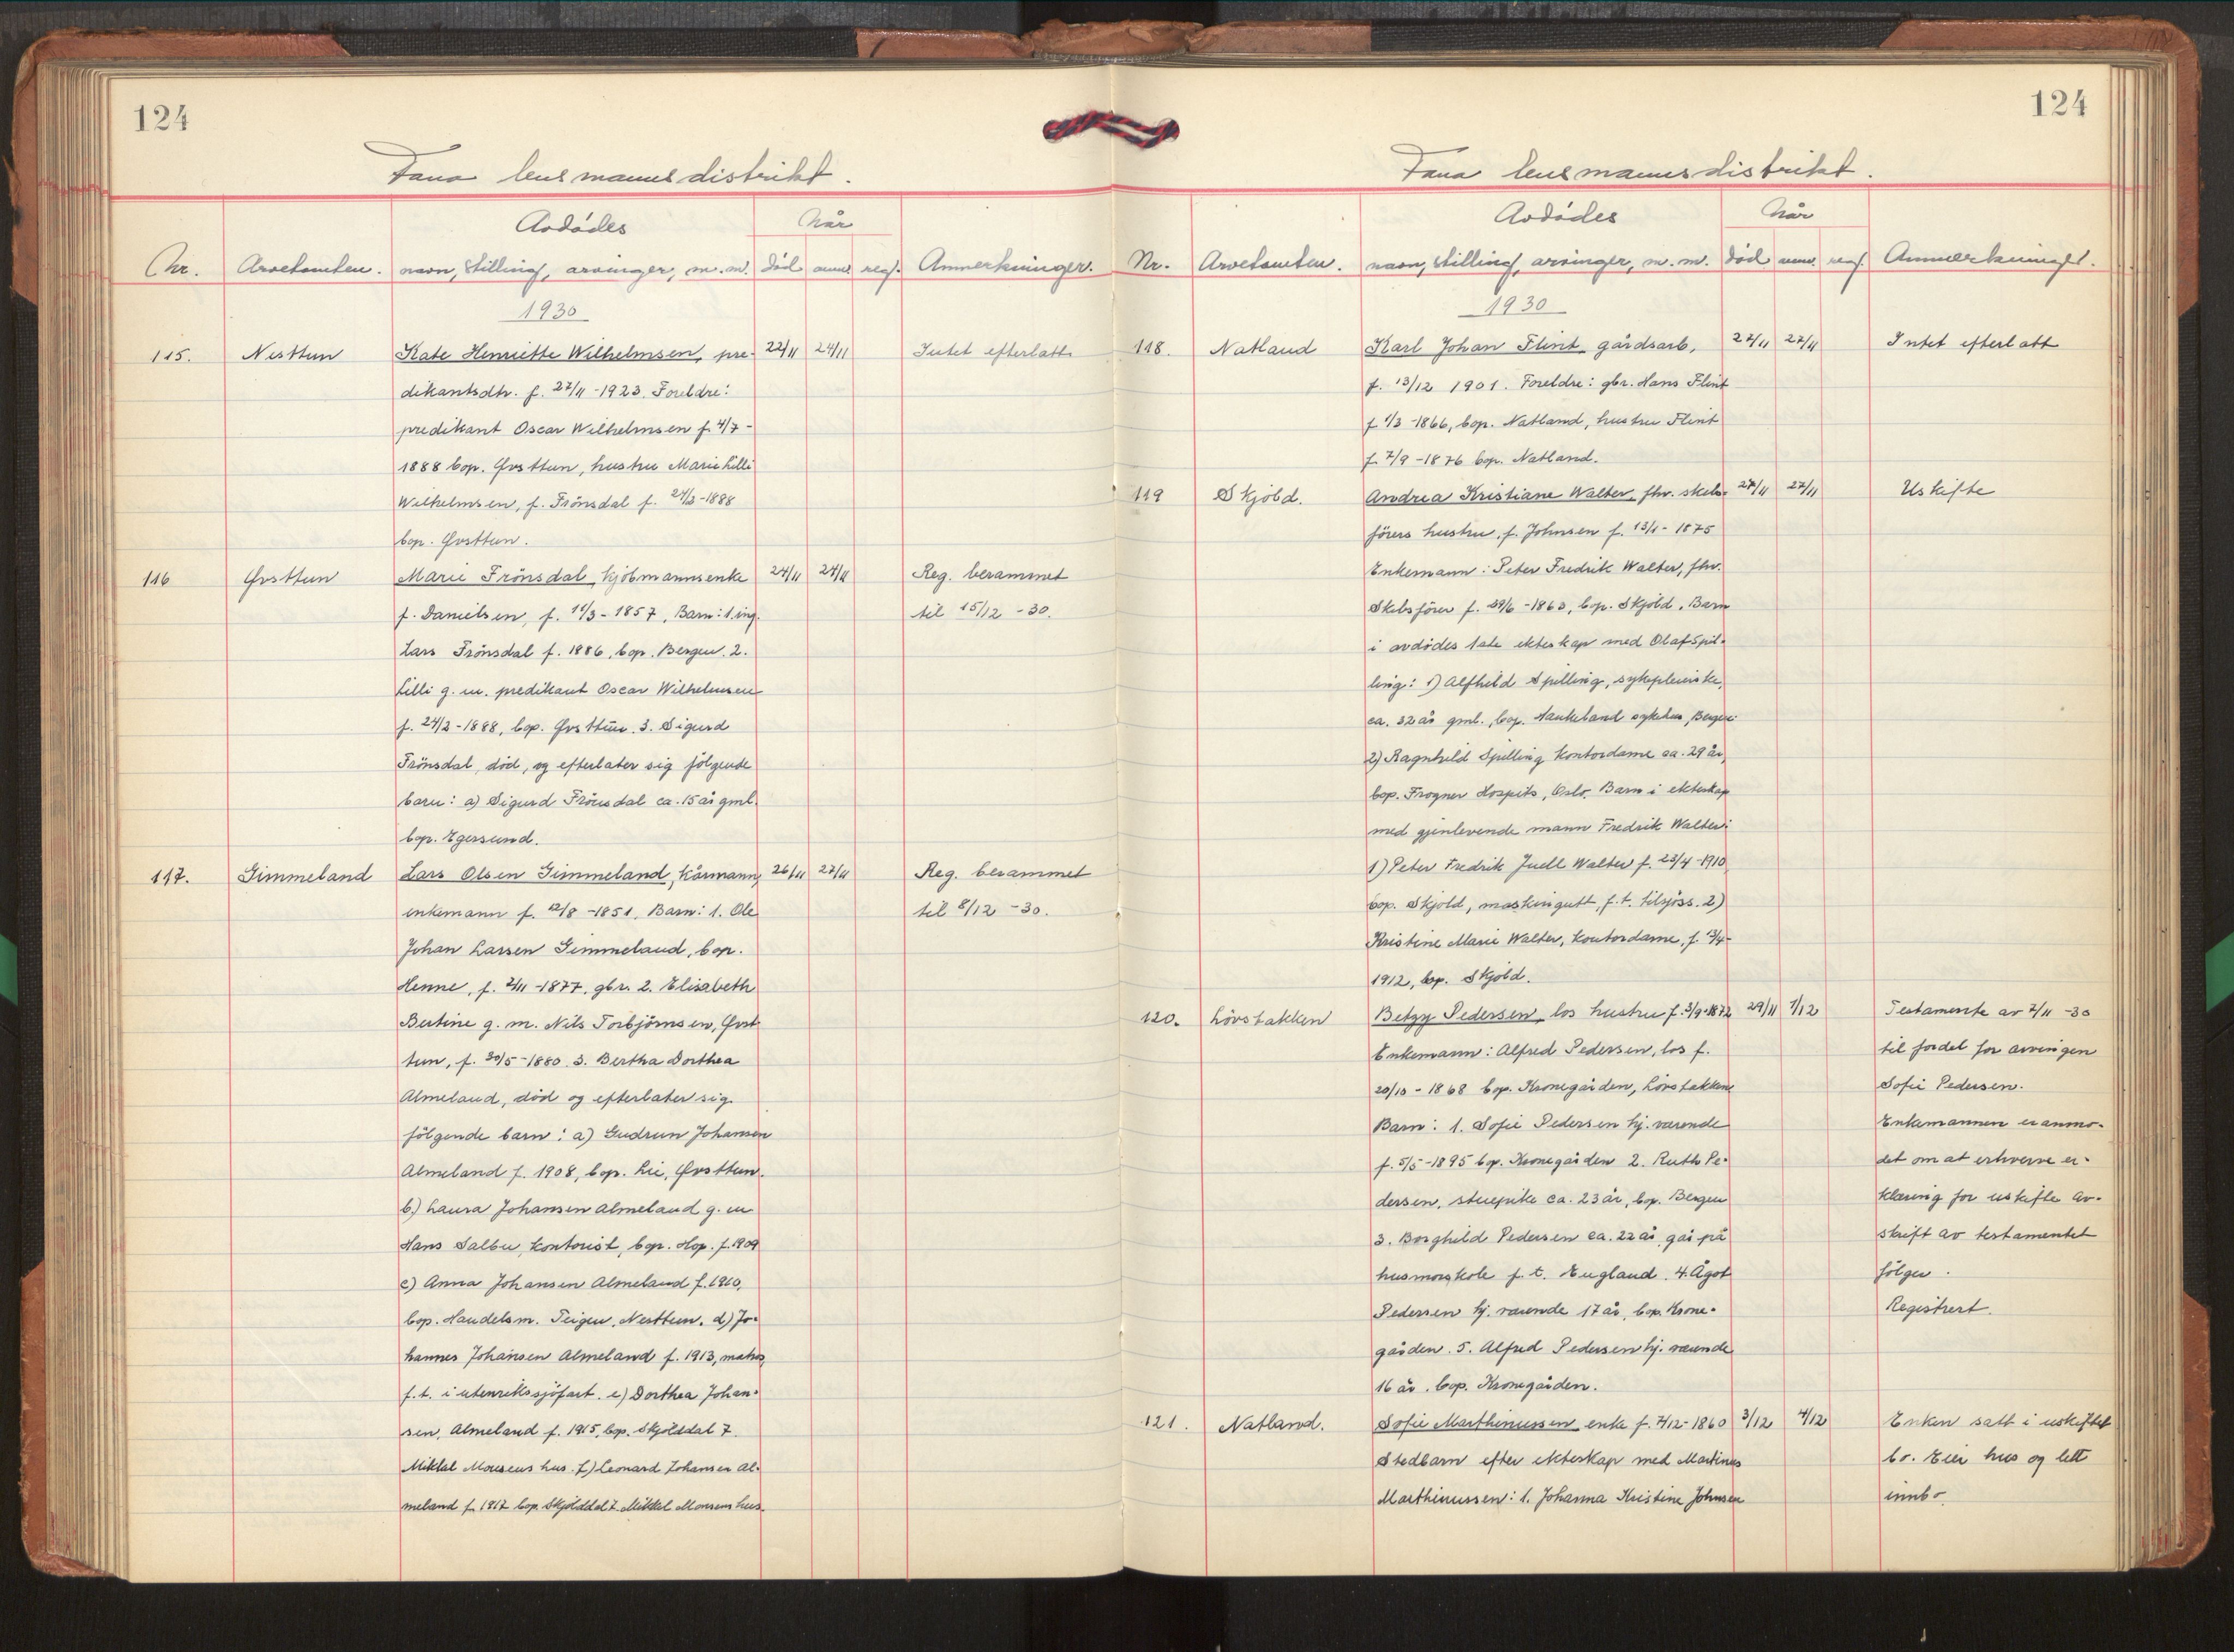 124
Fana lensmannsdistrikt.
Avdødes
Når
Nr. Arvetomten. navn, stilling, arvinger, m. m. død anm. reg. Anmerkninger.
1930
115. Nesttun Kate Henriette Wilhelmsen, pre- 22/11 24/11 Intet efterlatt.
dikantsdtr. f. 27/11 -1923. Foreldre:
predikant Oscar Wilhelmsen f. 4/7 -
1888 bop. Øvsttun, hustru Marie Lilli
Wilhelmsen, f. Frönsdal f. 24/2 -1888
bop. Øvsttun.
116 Øvsttun Marie Frönsdal kjöbmannsenke 24/11 24/11 Reg. berammet
f. Danielsen, f. 11/3 - 1857, Barn: 1. ing. til 15/12 -30.
Lars Frönsdal f. 1886, bop. Bergen. 2.
Lilli g. m. predikant Oscar Wilhelmsen
f. 24/2 -1888, bop. Øvsttun. 3. Sigurd
Frönsdal, död, og efterlater sig fölgende
barn: a) Sigurd Frönsdal ca. 15 år gml.
bop. Egersund.
117. Gimmeland Lars Olsen Gimmeland, kårmann, 26/11 27/11 Reg. berammet
enkemann f. 12/8 -1851. Barn: 1. Ole til 8/12 -30.
Johan Larsen Gimmeland, bop.
Henne, f. 2/11 -1877. gbr. 2. Elisabeth
Bertine g. m. Nils Torbjörnsen, Øvst-
tun, f. 30/5 -1880. 3. Bertha Dorthea
Almeland, död og efterlater sig
fölgende barn: a) Gudrun Johansen
Almeland f. 1908, bop. Lie, Øvsttun.
b.) Laura Johansen Almeland g. m.
Hans Salbu, kontorist, bop. Hop. f. 1909
c) Anna Johansen Almeland f. 1910,
bop. Handelsm. Teigen, Nesttun. d) Jo-
hannes Johansen Almeland f. 1913, matros,
f. t. i utenrikssjöfart. e) Dorthea Johan-
sen, Almeland f. 1915, bop. Skjölddal 7.
Mikkel Monsens hus. f) Leonard Johansen Al-
meland f. 1917 bop. Skjölddal 7. Mikkel Monsens hus.
124
Fana lensmannsdistrikt.
Avdødes
Når
Nr. Arvetomten. navn, stilling, arvinger, m. m. død anm. reg. Anmerkninger.
1930
118. Natland Karl Johan Flint gårdsarb, 27/11 27/11 Intet efterlatt
f. 13/12 1901. Foreldre: gbr. Hans Flint
f 1/3 -1866, bop. Natland, hustru Flint
f. 7/9 -1876 bop. Natland.
119 Skjöld. Andrea Kristiane Walter, fhv. skibs- 27/11 27/11 Uskifte
förers hustru, f. Johnsen f. 13/1 - 1875
Enkemann: Peter Fredrik Walter, fhv.
Skibsförer f. 29/6 -1863, bop. Skjöld. Barn
i avdödes 1ste ekteskap med Olaf Spil-
ling: 1) Alfhild Spilling, sykepleierske,
ca. 32 år gml., bop. Haukeland sykehus, Bergen:
2) Ragnhild Spilling kontordame ca. 29 år,
bop. Frogner Hospits, Oslo. Barn i ekteskap
med gjenlevende mann Fredrik Walter:
1) Peter Fredrik Juell Walter f. 23/4 -1910
bop. Skjold, maskingutt, f. t. tilsjöss. 2)
Kristine Marie Walter, kontordame, f.
1912, bop. Skjöld.
120. Lövstakken Betzy Pedersen, los hustru f. 3/9-1872 29/11 1/12 Testamente av 2/11 -30
Enkemann: Alfred Pedersen, los f. til fordel for arvingen
20/10 - 1868 bop. Kronegården, Lövstakken Sofie Pedersen.
Barn: 1. Sofie Pedersen hj. værende Enkemannen er anmo-
f. 5/5 -1895 bop. Kronegården 2. Ruth Pe- det om at erhverve er-
dersen, stuepike ca. 23 år, bop. Bergen klæring for uskifte av-
3. Borghild Pedersen ca. 22 år, går på skrift av testamentet
husmorskole f. t. England. 4. Ågot fölger.
Pedersen hj. værende 17 år, bop. Krone- Registrert.
gården. 5. Alfred Pedersen hj. værende
16 år, bop. Kronegården.
121. Natland. Sofie Marthinussen enke f. 7/12 - 1860 3/12 4/12 Enken satt i uskiftet
Stedbarn efter ekteskap med Martinus bo. Eier hus og litt
Marthinussen: 1. Johanna Kristine Johnsen innbo